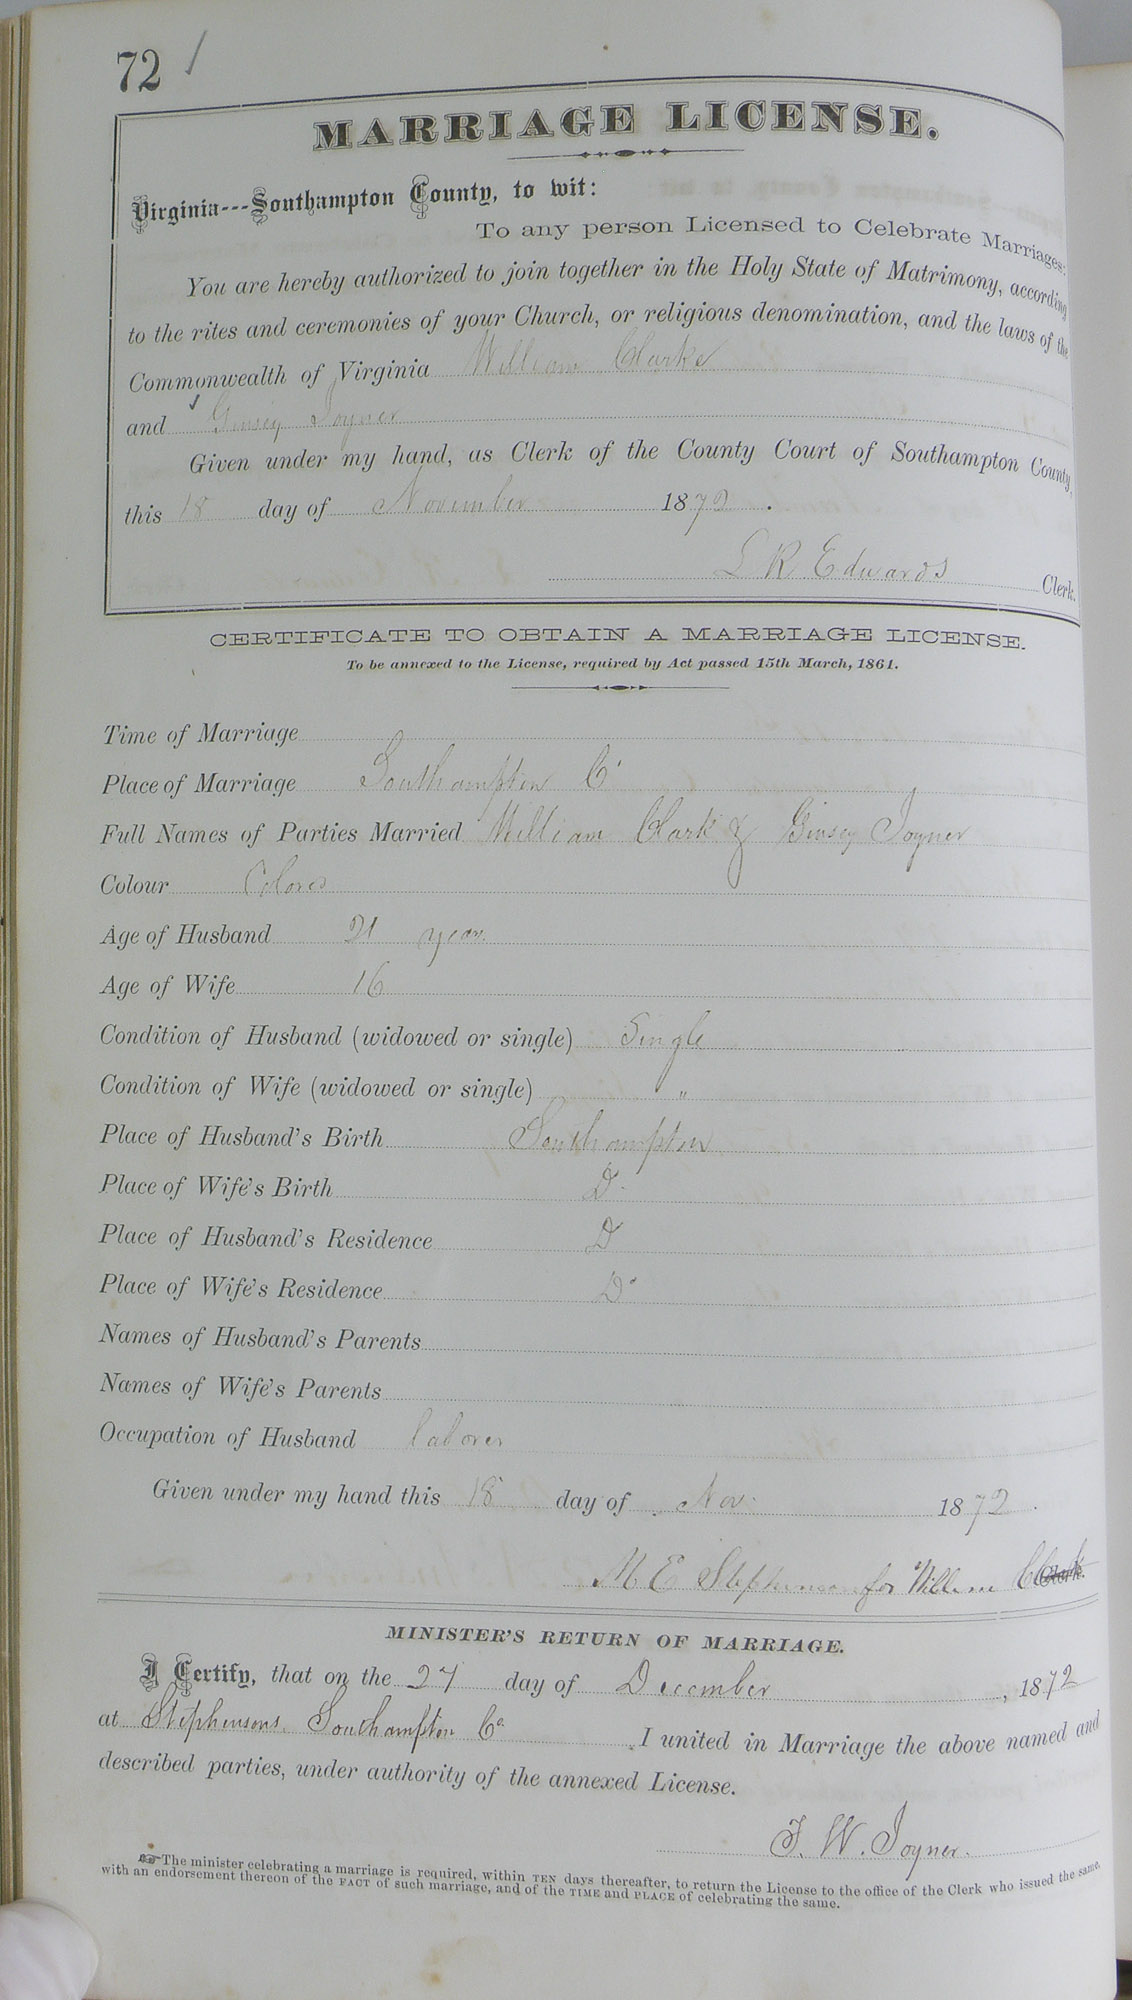 72 /
MARRIAGE LICENSE.
Virginia---Southampton County, to wit:
To any person Licensed to Celebrate Marriages:
You are hereby authorized to join together in the Holy State of Matrimony, according
to the rites and ceremonies of your Church, or religious denomination, and the laws of the
Commonwealth of Virginia William Clarke
and Ginsey Joyner
Given under my hand, as Clerk of the County Court of Southampton County,
this 18 day of November 1872.
L R Edwards Clerk.
CERTIFICATE TO OBTAIN A MARRIAGE LICENSE.
To be annexed to the License, required by Act passed 15th March, 1861.
Time of Marriage
Place of Marriage Southampton Co
Full Names of Parties Married William Clark & Ginsey Joyner
Colour Colored
Age of Husband 21 years
Age of Wife 16
Condition of Husband (widowed or single) Single
Condition of Wife (widowed or single) "
Place of Husband's Birth Southampton
Place of Wife's Birth Do
Place of Husband's Residence Do
Place of Wife's Residence Do
Names of Husband's Parents
Names of Wife's Parents
Occupation of Husband laborer
Given under my hand this 18 day of Nov. 1872.
M E Stephenson for William Clark
MINISTER'S RETURN OF MARRIAGE.
I Certify, that on the 27 day of December, 1872
at Stephensons. Southampton Co. I united in Marriage the above named and
described parties, under authority of the annexed License.
J. W. Joyner.
☞The minister celebrating a marriage is required, within TEN days thereafter, to return the License to the office of the Clerk who issued the same,
with an endorsement thereon of the FACT of such marriage, and of the TIME and PLACE of celebrating the same.